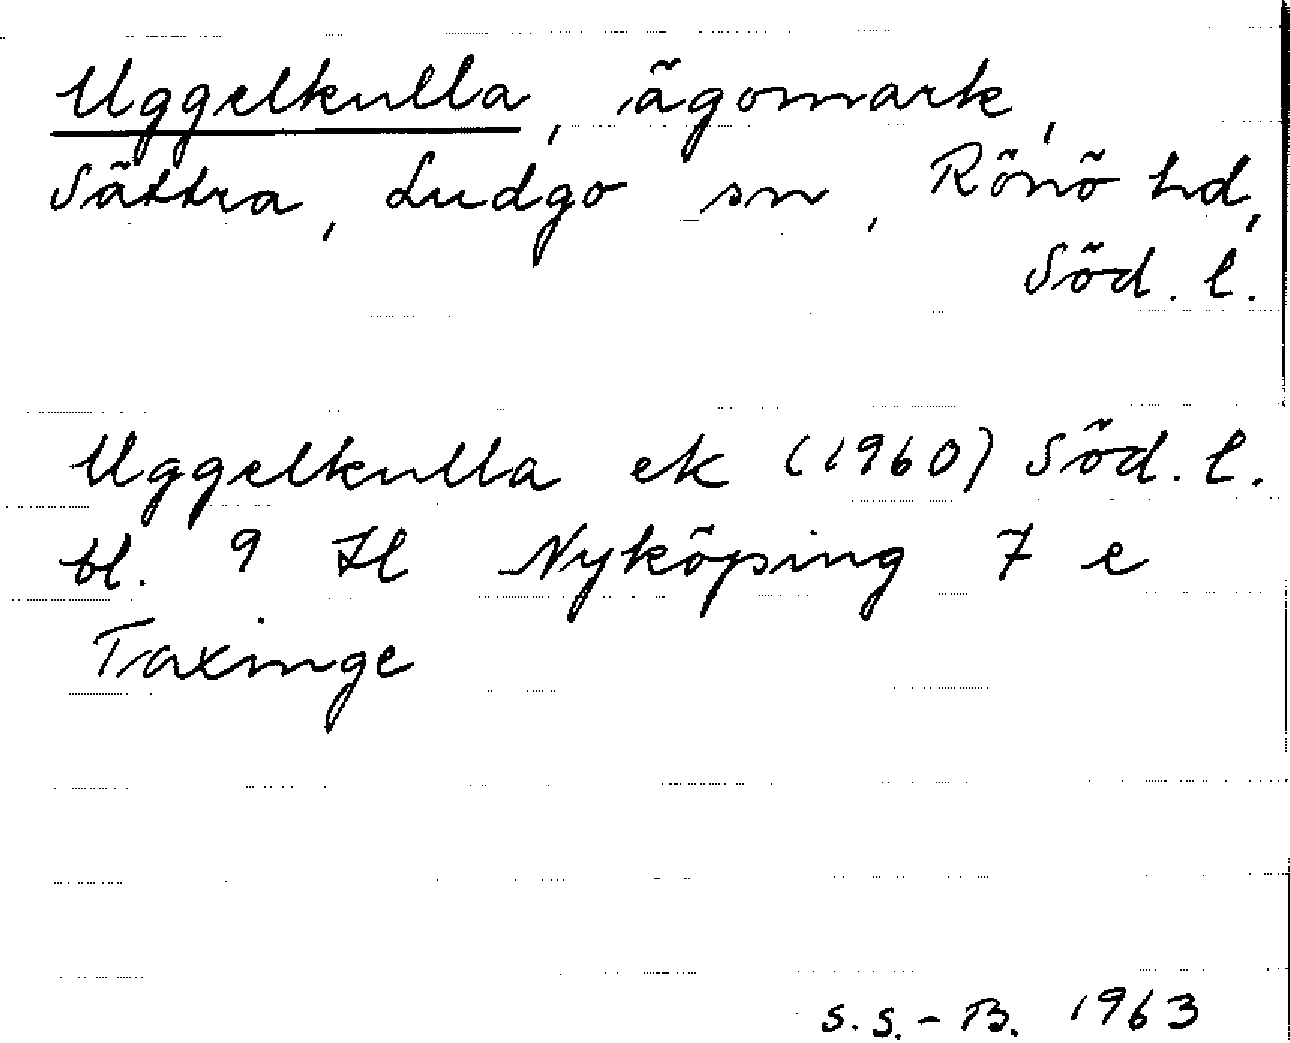 Uggelkulla, ägomark,
Sättra, Ludgo sn, Rönö hd,
Söd. l.
Uggelkulla ek (1960) Söd. l.
bl. 9 H Nyköping 7 e
Taxinge
S.S.-B. 1963